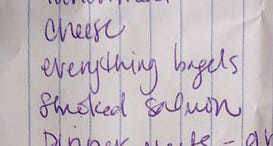 cheese
everything bagels
smoked salmon
Dinner meats -